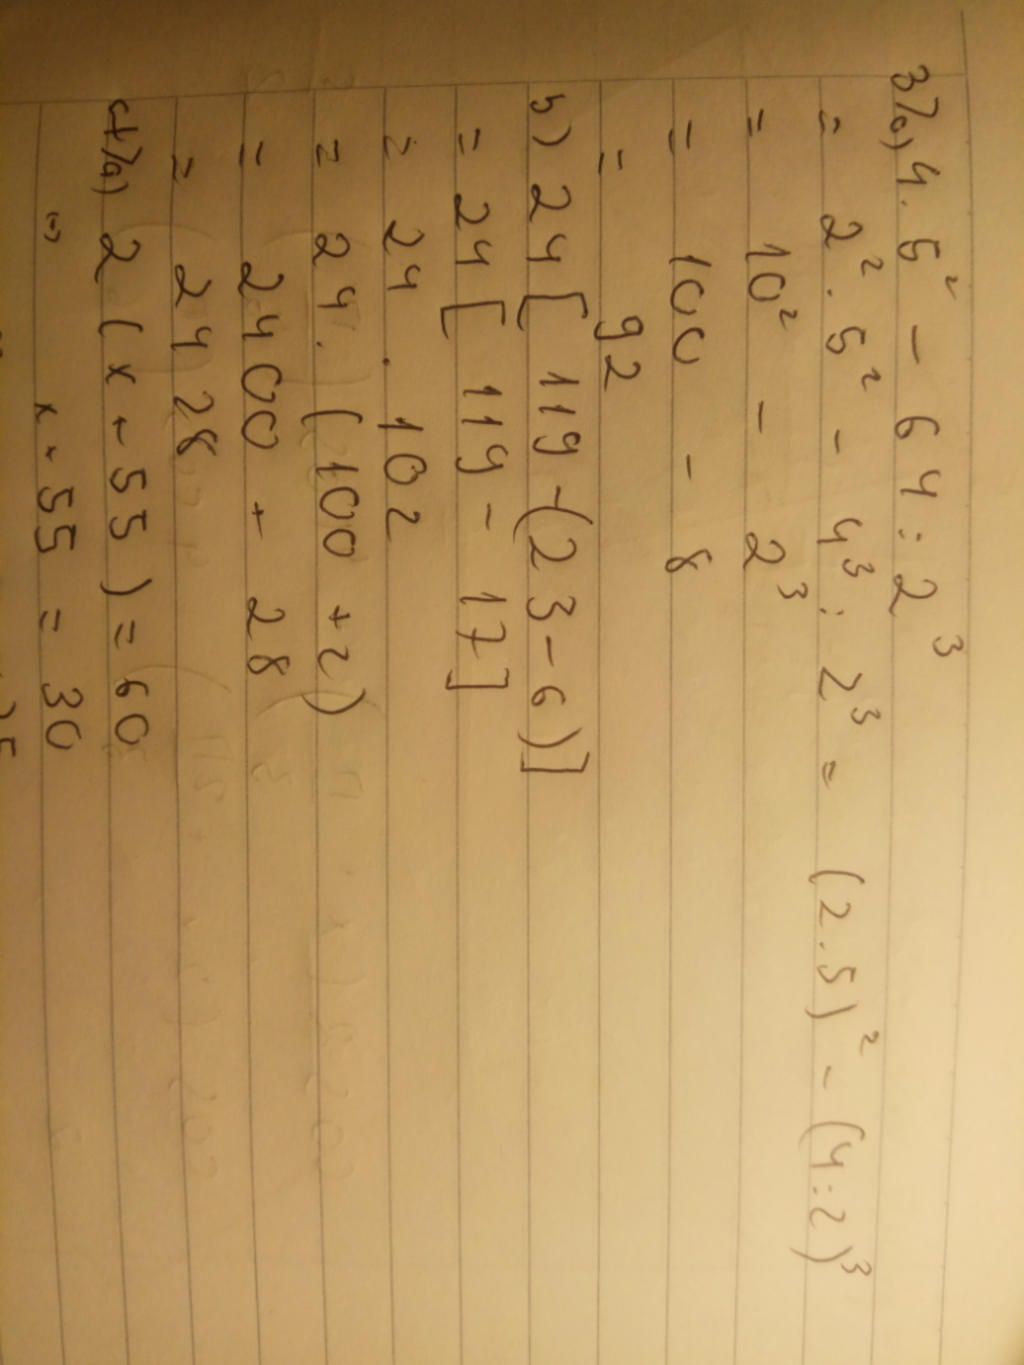 3/a) 4.5² - 64:2³
= 2².5² - 4³:2³ = (2.5)² - (4:2)³
= 10² - 2³
= 100 - 8
= 92
b) 24[119-(23-6)]
= 24[119-17]
= 24.102
= 24.(100+2)
= 2400 + 28
= 2428
4/a) 2(x+55)=60
(=) x+55 = 30